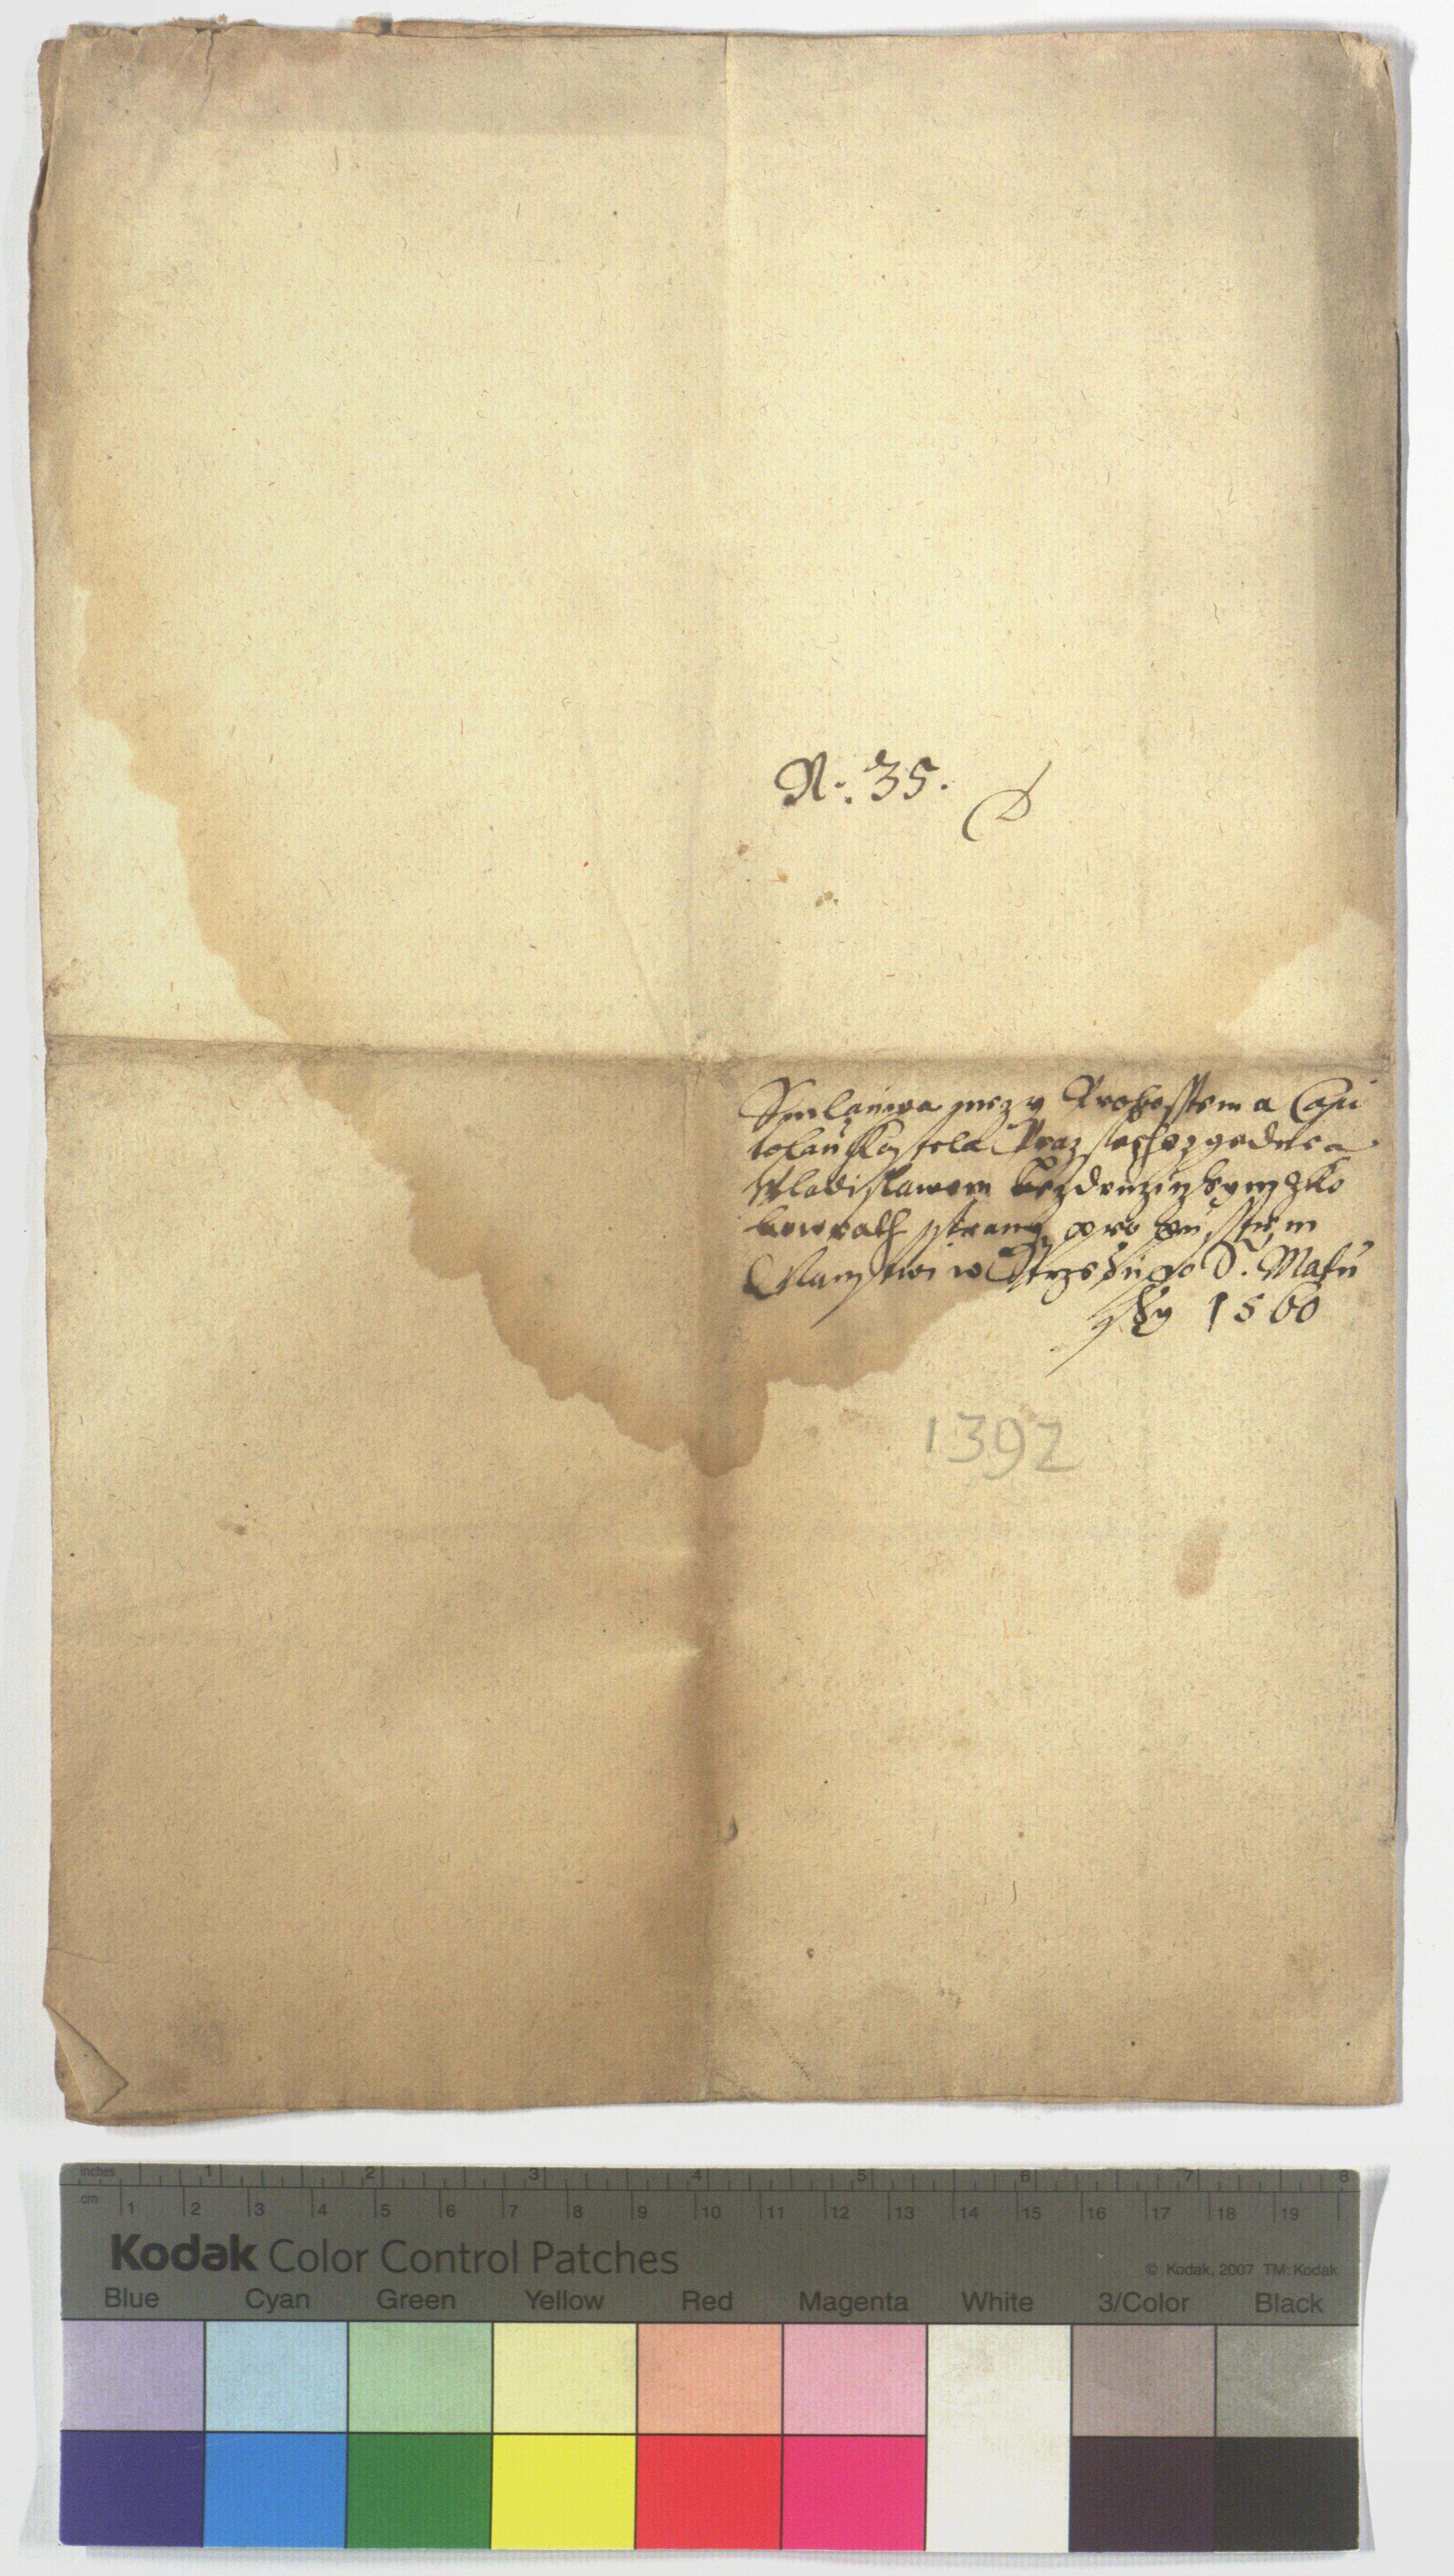 N. 35.
Smlauwa mezy Probosstem a Capi
tolau Kostela Praz<sup></sup>skeho z gedne a
Wladislawem Bezdruzickym z Ko
lowrath strany propusstem
Manstwi w Strzes 
1560
1392
inches 1 2 3 4 5 6 7 8
cm 1 2 3 4 5 6 7 8 9 10 11 12 13 14 15 16 17 18 19
Kodak Color Control Patches
© Kodak, 2007 TM: Kodak
Blue Cyan Green Yellow Red Magenta White 3/Color Black